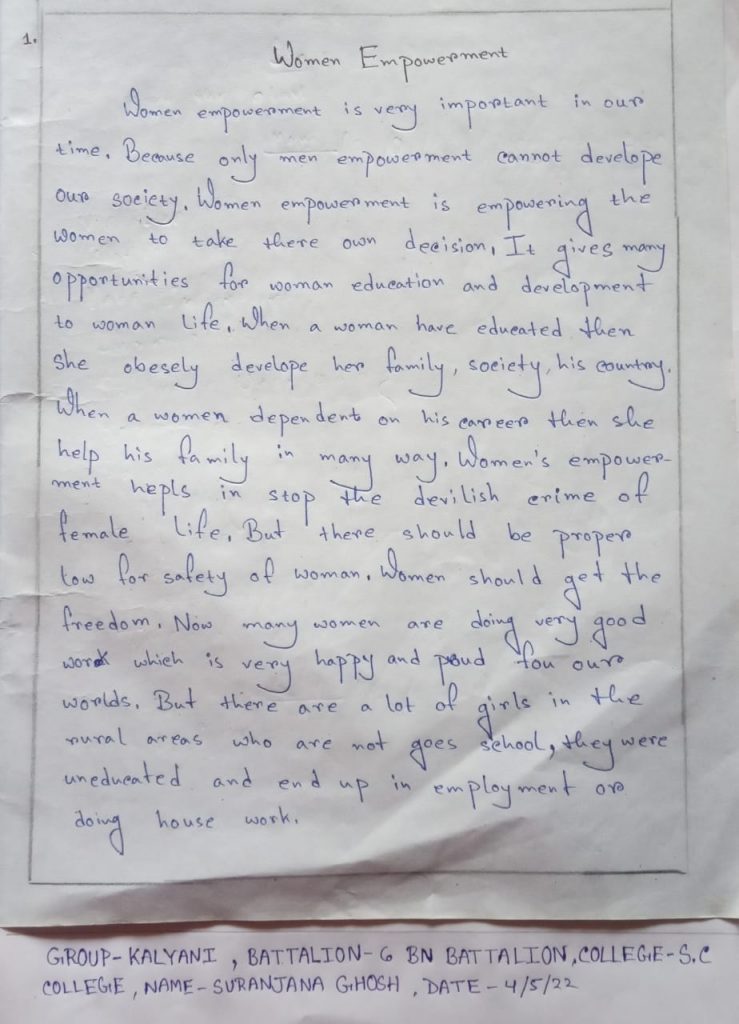 1.
Women Empowerment
Women empowerment is very important in our
time. Because only men empowerment cannot develope
our society. Women empowerment is empowering the
women to take there own decision, It gives many
opportunities for woman education and development
to woman life. When a woman have educated then
she obesely develope her family, society, his country.
When a women dependent on his career then she
help his family in many way. Women's empower-
ment hepls in stop the devilish crime of
female life. But there should be proper
low for safety of woman. Women should get the
freedom. Now many women are doing very good
work which is very happy and poud fou our
worlds. But there are a lot of girls in the
rural areas who are not goes school, they were
uneducated and end up in employment or
doing house work.
GROUP-KALYANI , BATTALION-6 BN BATTALION,COLLEGE-S.C
COLLEGE, NAME-SURANJANA GHOSH , DATE-4/5/22